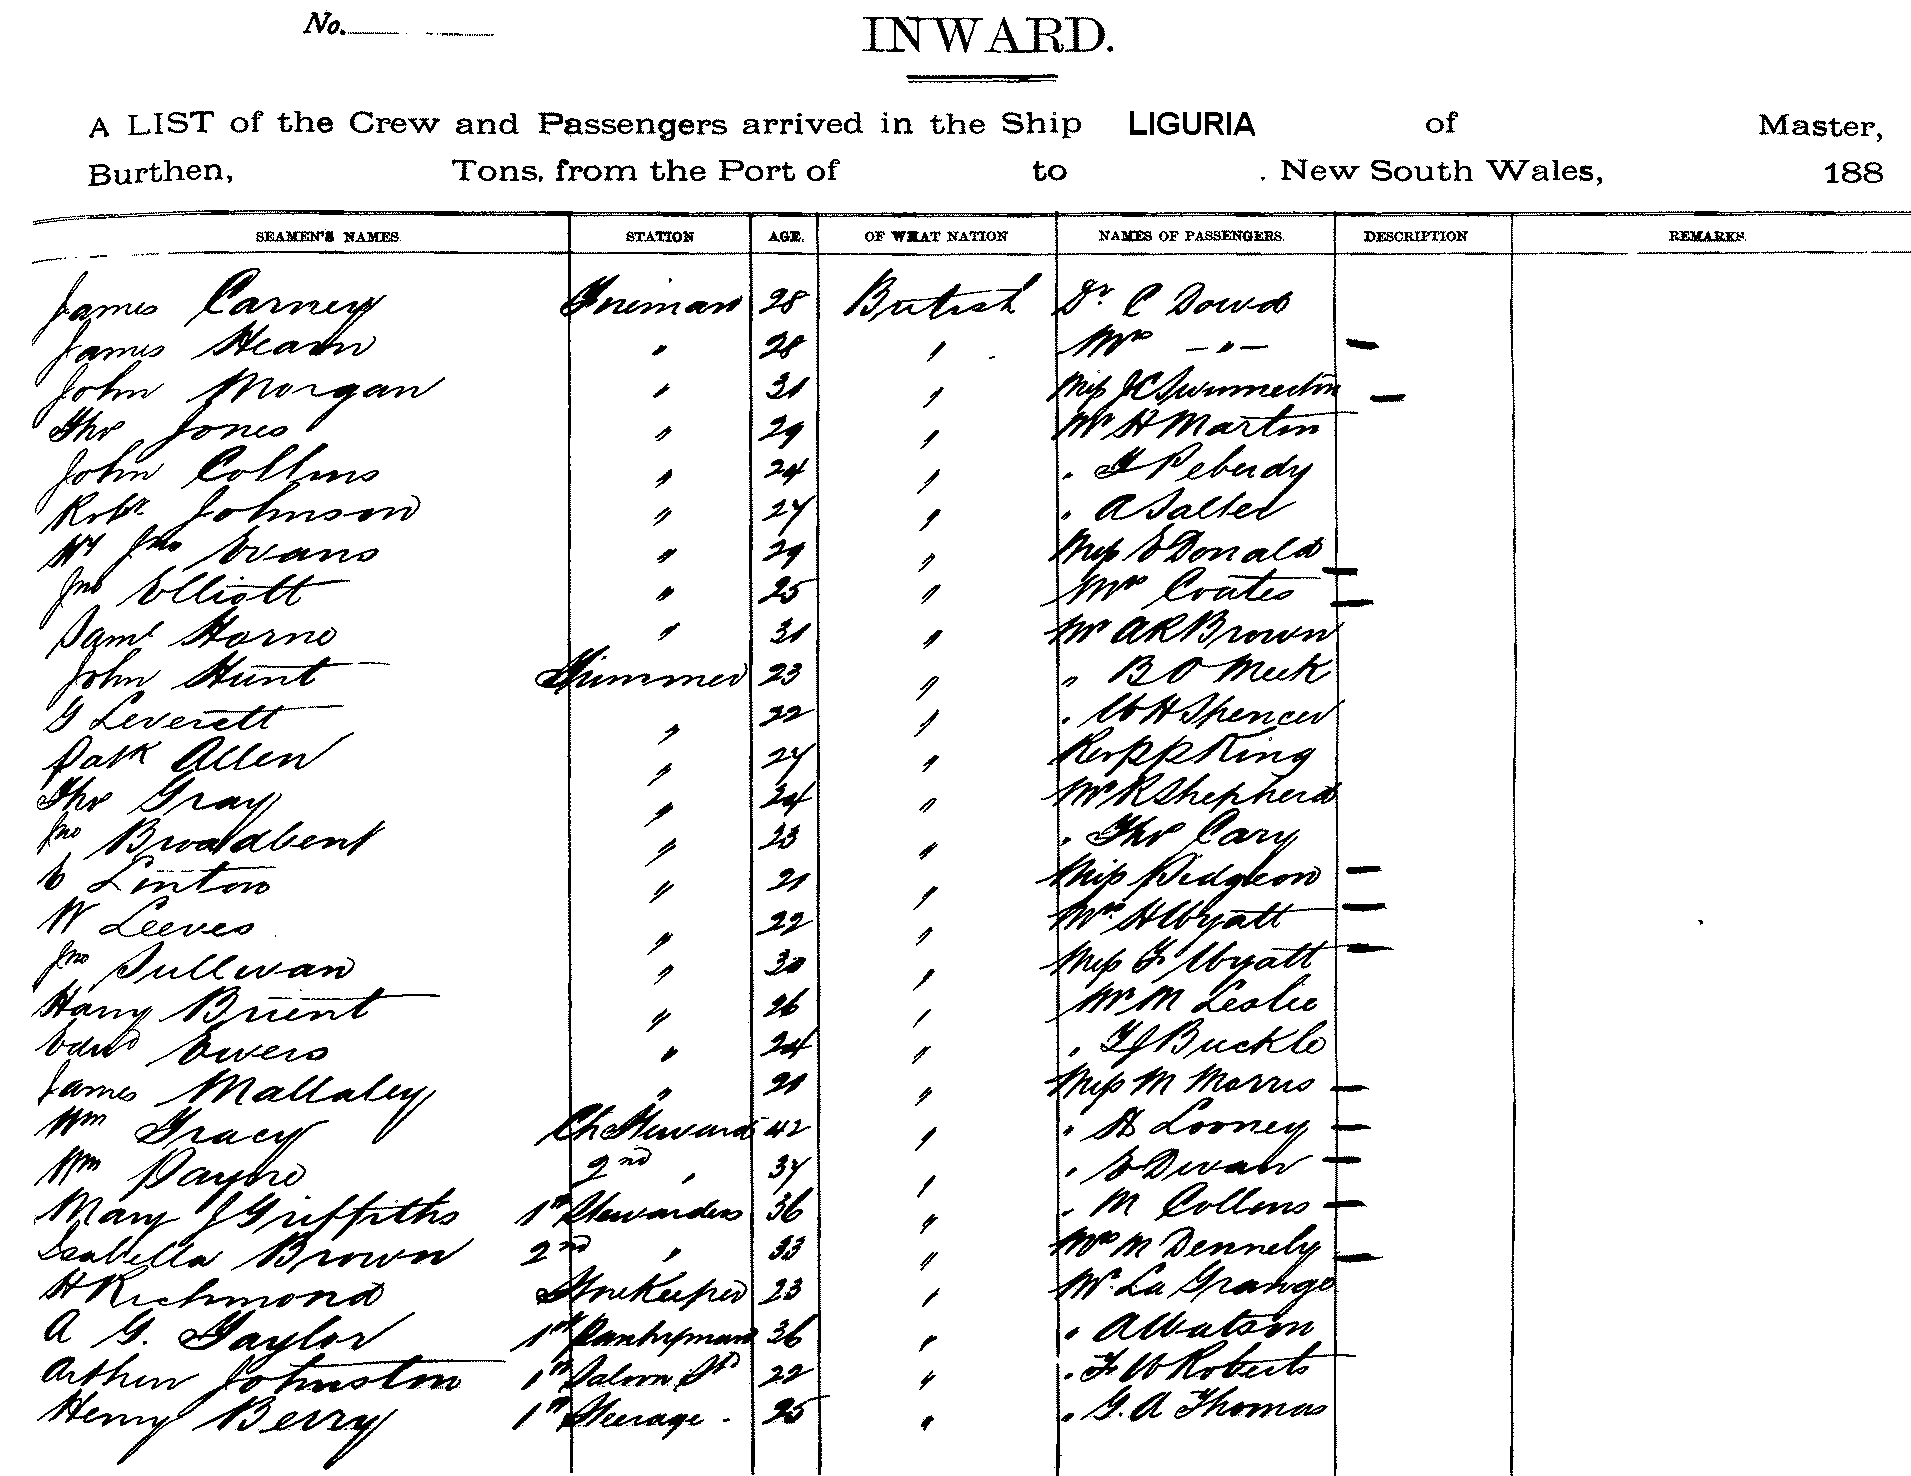 No.
INWARD.
A LIST of the Crew and Passengers arrived in the Ship LIGURIA of Master,
Burthen, Tons, from the Port of to . New South Wales, 188
SEAMEN'S NAMES STATION AGE. OF WHAT NATION NAMES OF PASSENGERS. DESCRIPTION REMARKS.
James Carney Fireman 28 British Dr. C Dowd
James Hearn " 28 " Mrs — " — —
John Morgan " 31 " Miss J C Swinnerton —
Thos Jones " 29 " Mr H Martin
John Collins " 24 " " F Peberdy
Robt Johnson " 27 " " A Salter
Wm Jno Evans " 29 " Miss E Donald —
Jno Elliott " 25 " Mrs Coates —
Saml Horne " 31 " Mr A R Brown
John Hunt Trimmer 23 " " B O Meek
G Leverett " 22 " " W H Spencer
Patk Allen " 27 " Rev P P King
Thos Gray " 24 " Mr R Shepherd
Jno Broadbent " 23 " " Thos Cary
C Linton " 21 " Miss Pidgeon —
W Leeves " 22 " Mrs. H Wyatt —
Jno Sullivan " 30 " Miss F Wyatt —
Harry Brient " 26 " Mr M Leslie
Edwd Ewers " 24 " " F J Buckle
James Mallaley " 21 " Miss M Morris —
Wm Tracy Ch Steward 42 " " H Looney —
Wm Payne 2nd " 37 " " E Divan —
Mary J Griffiths 1st Stewardess 36 " " M Collens —
Isabella Brown 2nd " 33 " Mrs M Dennehy —
H Richmond Storekeeper 23 " Mr. La Grange
A G. Taylor 1st Pantryman 36 " " A Watson
Arthur Johnston 1st Saloon Std 22 " " F W Roberts
Henry Berry 1st Steerage . 25 " " G. A Thomas